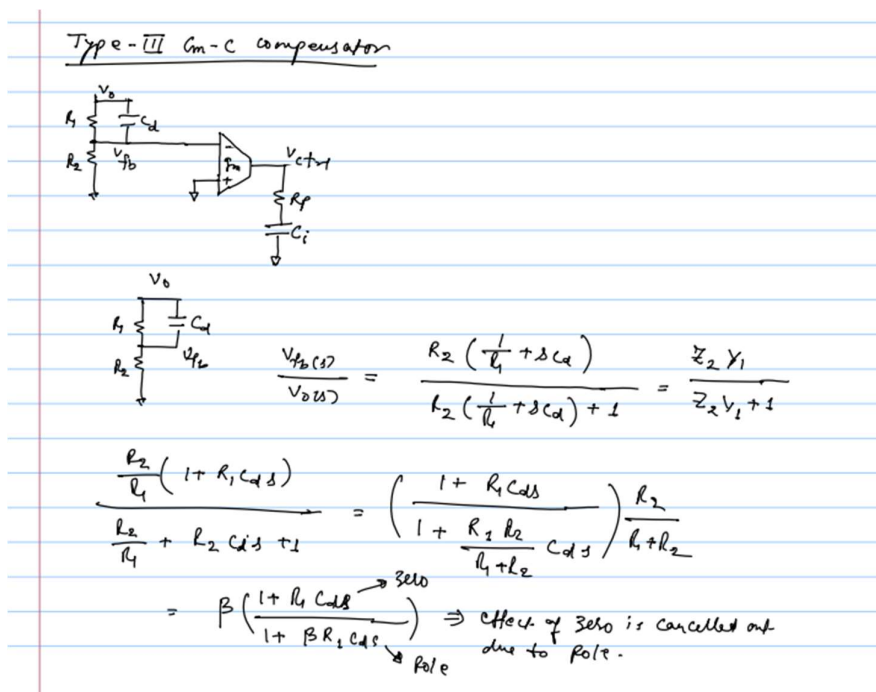 Type-III Gm-C compensator
Vo
R1
Cd
R2
Vfb
-
gm
+
Vctrl
Rp
Ci
Vo
R1
Cd
R2
Vfb
Vfb(s) / Vo(s) = R2 (1/R1 + sCd) / R2 (1/R1 + sCd) + 1 = Z2 Y1 / Z2 Y1 + 1
R2/R1 (1 + R1 Cd s) / R2/R1 + R2 Cd s + 1 = (1 + R1 Cd s / 1 + R1 R2/R1+R2 Cd s) R2/R1+R2
= β (1 + R1 Cd s / 1 + β R1 Cd s) ⇒ effect of zero is cancelled out
zero
due to pole.
Pole